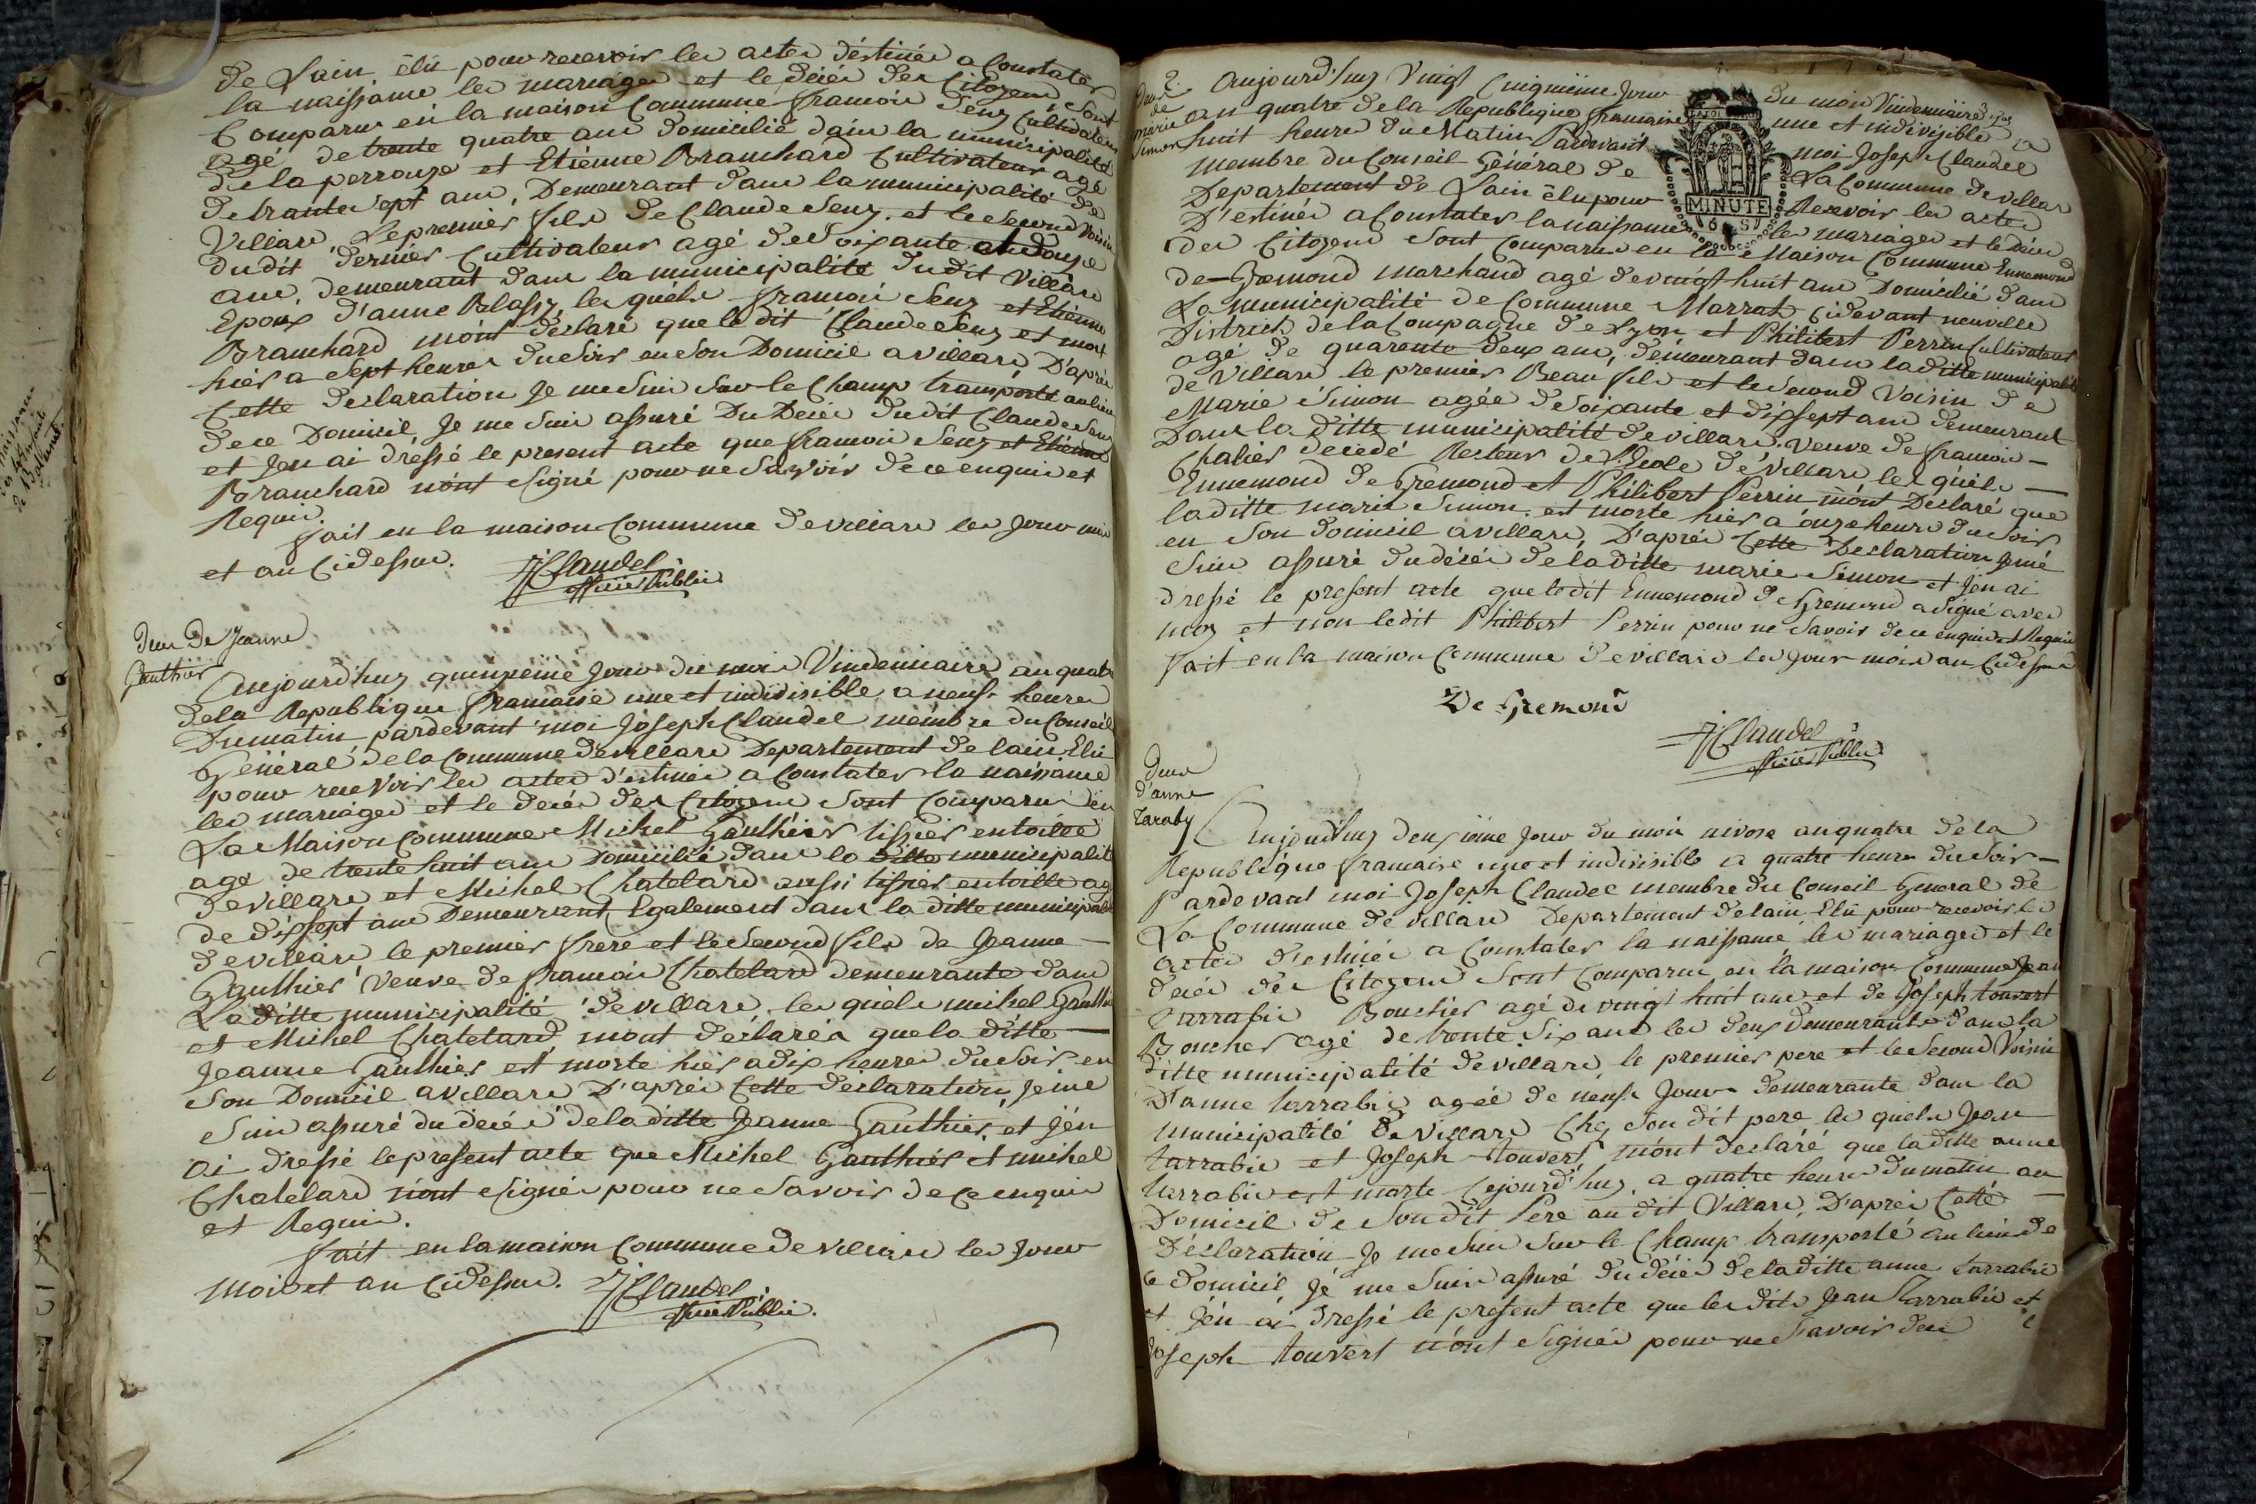 de Lain élu pour recevoir les actes déstinés a Constater
la naissance les mariages et le décés des Citoyens sont
Comparus en la maison Commune françois Seuz Cultivateur
agé de trente quatre ans domicilié dans la municipalité
de la perrouze et Etienne Branchard Cultivateur agé
de trante sept ans, Demeurant dans la municipalité de
Villars, Le premier fils de Claude Seuz et le second voisin
dudit dernier Cultivateur agé de Soixante et douze
ans, demeurant dans la municipalité dudit Villars
Epoux d'anne Blossy, les quéls françois Seuz et Etienne
Branchard m'ont déclaré que le dit Claude Seuz est mort
hiér a sept heures du Soir en Son Domicil a villars D'aprés
Cette declaration Je me suis sur le Champ transporté au lieu
de ce Domicil, Je me suis assuré Du Décés du dit Claude Seuz
et Jen ai dressé le present acte que françois Seuz et Etienne
Branchard n'ont Signé pour ne Savoir de ce enquis et
Requis.
fait en la maison Commune de villars les Jour mois
et an Cidessus.
J Claudel
officié Public
Deces De Jeanne
Gauthier
Aujourd'huy quinzieme Jour du mois Vindemiaire an quatre
dela Republique francaise une et indivisible a neuf heures
Du matin pardevant moi Joseph Claudel membre du Conseil
Général de la Commune de villars Departement de lain Elu
pour recevoir les actes d'estinés a Constater la naissance
les mariages et le decés des Citoyens sont Comparus en
La Maison Commune Michel Gauthier tissier en toille
agé de trente huit ans Domicilié dans la ditte municipalité
de villars et Michel Chatelard aussi tissier en toille agé
de dixsept ans Demeurant Egalement dans la ditte municipalité
de villars le premier frere et le Second fils de Jeanne
Gauthier Veuve de françois Chatelard demeurante dans
La ditte municipalité de villars, les quéls michel Gauthier
et Michel Chatelard m'ont déclarés que la ditte
Jeanne Gauthier est morte hier a dix heures du Soir en
Son Domicil a villars D'aprés Cette déclaration, Je me
Suis assuré du decés de la ditte Jeanne Gauthier, et j'en
ai dressé le present acte que Michel Gauthier et michel
Chatelard n'ont Signés pour ne Savoir de ce enquis
et Requis.
fait en la maison Commune de villars les Jour
Mois et an Cidessus.
J Claudel
officié Public.
de
marie
Simon
Aujourd'huy Vingt Cinquiéme Jour du mois Vindemiaire
an quatre de la Republique francaise une et indivisible a
huit heures du Matin Pardevant moi Joseph Claudel
membre du Conseil Général de La Commune de villars
Departement de Lain élu pour Recevoir les actes
D'estinés a Constater la naissance les mariages et le décés
des Citoyens Sont Comparus en la Maison Commune Ennemond
MINUTE
de Gremond Marchand agé de vingt huit ans Domicilié dans
La municipalité de Commune Marrat Cidevant neuville
District de la Campagne de Lyon et Philibert Perrin Cultivateur
agé de quarente deux ans, demeurant dans la ditte municipalité
de Villars le premier Beau fils et le Second Voisin de
Marie Simon agée de Soixante et dixsept ans demeurant
Dans la ditte municipalité de villars. Veuve de françois
Chalier decedé Recteur de l'Ecole de Villars, les quéls
Ennemond de Gremond et Philibert Perrin m'ont Déclaré que
la ditte marie Simon est morte hier a onze heures du Soir
en Son domicil a villars, D'aprés Cette Declaration Je me
Suis assuré du décés de la ditte marie Simon et J'en ai
dressé le present acte que le dit Ennemond de Gremond a signé avec
moy et non le dit Philibert Perrin pour ne Savoir de ce enquis et Requis
fait en la maison Commune de villars les Jour mois an Cidessus
De Gremond
J Claudel
officié Public
Deces
d'anne
Taraby
Aujourd'huy deuxiéme Jour du mois nivose an quatre de la
Republique francaise une et indivisible a quatre heures du Soir
Pardevant moi Joseph Claudel membre du Conseil General de
La Commune de Villars Departement de lain Elu pour recevoir les
actes d'estinés a Constater la naissance les mariages et le
décés des Citoyens Sont Comparus en la maison Commune Jean
Tarrabie Boucher agé de vingt huit ans et de Joseph touvert
Boucher agé de trente Six ans les deux demeurants dans la
ditte municipalité de villars, le premier pere et le Second Voisin
D'anne tarrabie agée de neuf Jours demeurante dans la
municipalité de Villars Chez Son dit pere les quéls Jean
tarrabie et Joseph touvert m'ont déclaré que la ditte anne
tarrabie est morte Cejourd'huy a quatre heures du matin au
Domicil de Son dit Pere au dit Villars, D'aprés Cette
Déclaration Je me Suis Sur le Champ transporté au lieu de
ce domicil Jé me suis assuré du décés de la ditte anne tarrabie
et J'en ai dressé le present acte que les dits Jean Tarrabie et
Joseph touvert n'ont Signés pour ne Savoir de ce